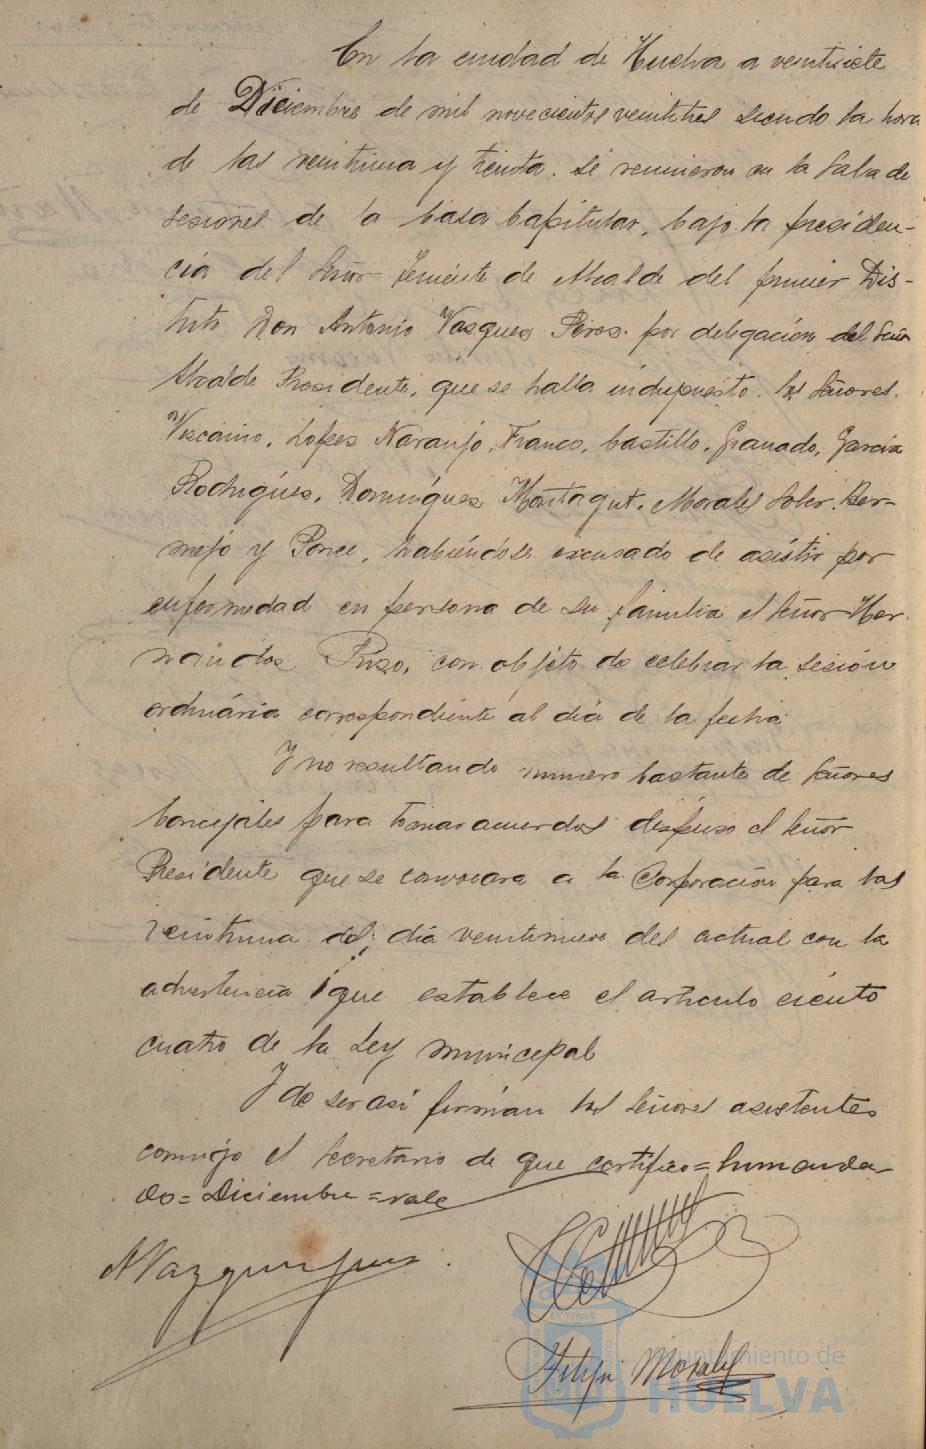 En la ciudad de Huelva a veintisiete
de Diciembre de mil novecientos veintitres siendo la hora
de las veintiuna y treinta. se reunieron en la Sala de
sesiones de la Casa Capitular, bajo la presiden-
cia del Señor Teniente de Alcalde del primer Dis-
trito Don Antonio Vazquez Perez. por delegación del Señor
Alcalde Presidente, que se halla indispuesto. los Señores.
Vizcaino, Lopez Naranjo, Franco, Castillo, Granado, Garcia
Rodriguez, Dominguez Montagut. Morales Soler. Ber-
mejo y Ponce, habiéndose excusado de asistir por
enfermedad en persona de su familia el Señor Her-
nandez Pinzo, con objeto de celebrar la sesión
ordinária correspondiente al día de la fecha
Y no resultando numero bastante de Señores
Concejales para tomar acuerdos dispuso el Señor
Presidente que se convocara a la Corporación para las
veintiuna del día veintinueve del actual con la
advertencia que establece el artículo ciento
cuatro de la Ley municipal
Y de ser así firman los Señores asistentes
conmigo el Secretario de que certifico =
do = Diciembre = vale
A Vazquez Perez
Felipe Morales
Ayuntamiento de
HUELVA